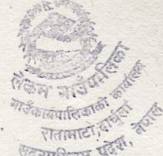 लेकम गाउँपालिका
गाउँकार्यपालिकाको कार्यालय
रातामाटा, दार्चुला
सुदूरपश्चिम प्रदेश, नेपाल